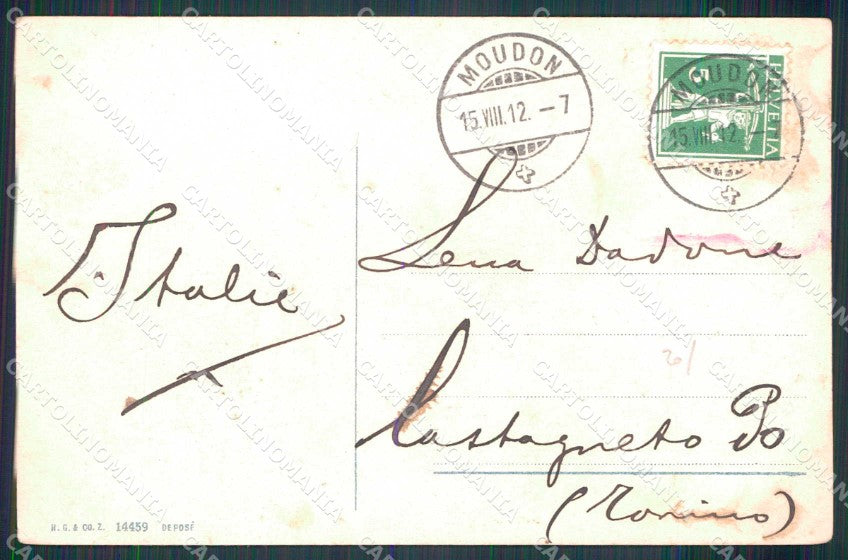 MOUDON
15.VIII.12.–7
HELVETIA
5
MOUDON
15.VIII.12.–
Italie
Lena Dadone
Castagneto Po
(Torino)
H. G. & CO. Z. 14459 DEPOSÉ
CARTOLINOMANIA